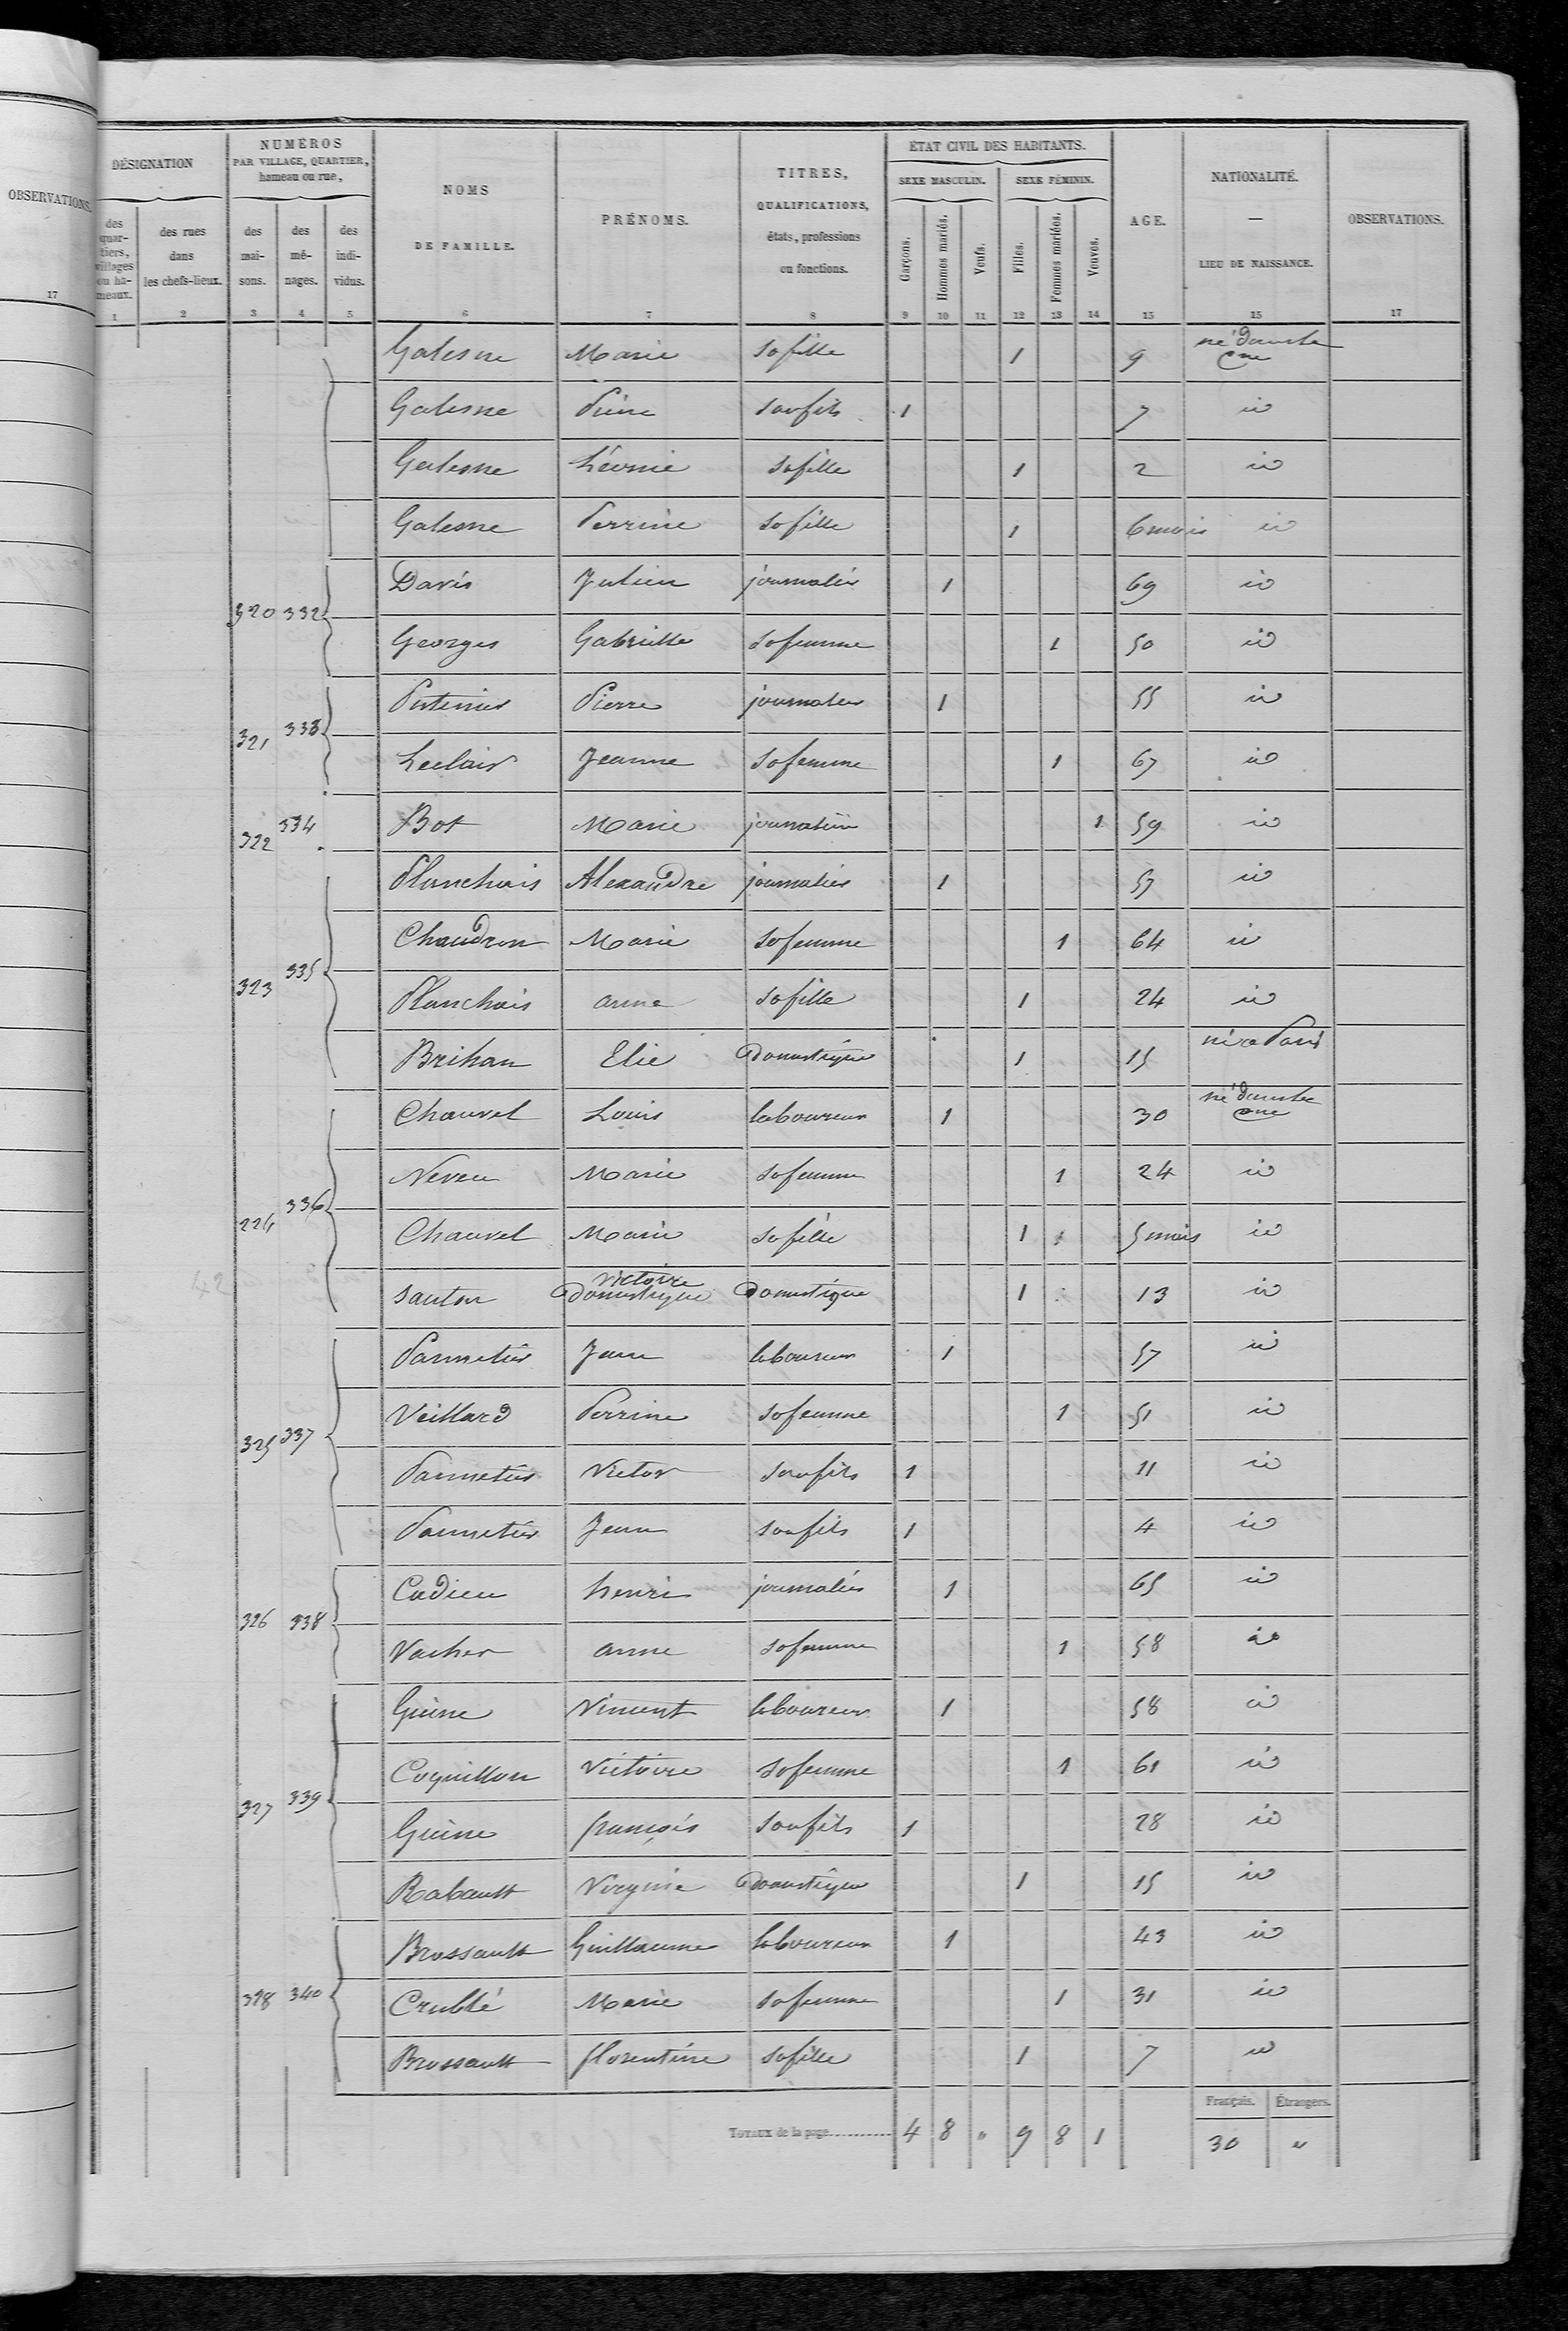 OBSERVATIONS.
17
DÉSIGNATION
des quartiers, villages ou hameaux.
des rues dans les chefs-lieux.
NUMÉROS
PAR VILLAGE, QUARTIER,
hameau ou rue,
des maisons.
des ménages.
des individus.
NOMS
DE FAMILLE.
PRÉNOMS.
TITRES,
QUALIFICATIONS,
états, professions
ou fonctions.
ÉTAT CIVIL DES HABITANTS.
SEXE MASCULIN.
SEXE FÉMININ.
Garçons.
Hommes mariés.
Veufs.
Filles.
Femmes mariées.
Veuves.
AGE.
NATIONALITÉ.
—
LIEU DE NAISSANCE.
OBSERVATIONS.
1 2 3 4 5 6 7 8 9 10 11 12 13 14 15 15 17
Galesne Marie sa fille 1 9 né dans la cne
Galesne Pierre son fils 1 7 id
Galesne Léonie sa fille 1 2 id
Galesne Perrine sa fille 1 6 mois id
320 332 Davis Julien journalier 1 69 id
Georges Gabrielle sa femme 1 50 id
321 333 Pierre journalier 1 55 id
Leclair Jeanne sa femme 1 67 id
322 334 Bot Marie journalière 1 59 id
323 335 Planchais Alexandre journalier 1 57 id
Chaudron Marie sa femme 1 64 id
Planchais anne sa fille 1 24 id
Brihan Elie Domestique 1 15 né à Paris
224 336 Chauvel Louis laboureur 1 30 né dans la cne
Neveu Marie sa femme 1 24 id
Chauvel Marie sa fille 1 5 mois id
santon Domestique victoire Domestique 1 13 id
325 337 Parmetier Jean laboureur 1 57 id
Veillard Perrine sa femme 1 51 id
Parmetier Victor son fils 1 11 id
Parmetier Jean son fils 1 4 id
326 338 Cadieu henri journalier 1 65 id
Vacher anne sa femme 1 58 id
327 339 Guine Vincent laboureur 1 58 id
Coquillon Victoire sa femme 1 61 id
Guine françois son fils 1 28 id
Rabault Virginie Domestique 1 15 id
328 340 Brossault Guillaume laboureur 1 43 id
Crublé Marie sa femme 1 31 id
Brossault florentine sa fille 1 7 id
42
Français. Étrangers.
TOTAUX de la page 4 8 " 9 8 1 30 "